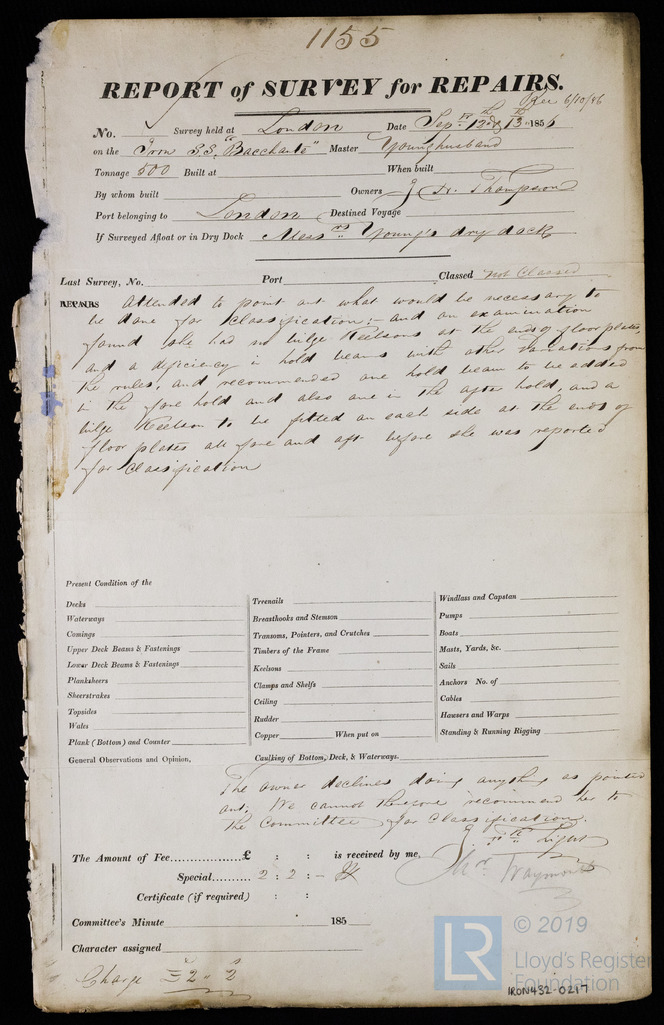 1155
REPORT of SURVEY for REPAIRS.
Rec 6/10/56
No. Survey held at London Date Sepr 12th & 13th 1856
on the Iron S.S. "Bacchante" Master Younghusband
Tonnage 500 Built at When built
By whom built Owners J. Thompson
Port belonging to London Destined Voyage
If Surveyed Afloat or in Dry Dock Messrs Young's dry dock
Last Survey, No. Port Classed Not Classed
REPAIRS Attended to point out what would be necessary to
be done for Classification:- and on examination
found she had no bilge Keelsons at the ends of floor plates,
and a deficiency in hold beams with other variations from
the rules, and recommended one hold beam to be added
in the fore hold and also one in the after hold, and a
bilge Keelson to be fitted on each side at the ends of
floor plates all fore and aft before she was reported
for Classification
Present Condition of the
Decks
Waterways
Comings
Upper Deck Beams & Fastenings
Lower Deck Beams & Fastenings
Planksheers
Sheerstrakes
Topsides
Wales
Plank (Bottom) and Counter
Treenails
Breasthooks and Stemson
Transoms, Pointers, and Crutches
Timbers of the Frame
Keelsons
Clamps and Shelfs
Ceiling
Rudder
Copper When put on
Windlass and Capstan
Pumps
Boats
Masts, Yards, &c.
Sails
Anchors No. of
Cables
Hawsers and Warps
Standing & Running Rigging
General Observations and Opinion, Caulking of Bottom, Deck, & Waterways.
The owner declines doing anything as pointed
out. We cannot therefore recommend her to
the Committee for Classification.
Light
The Amount of Fee............... £ : : is received by me,
Special.......... 2 : 2 : -
Certificate (if required) : :
Committee's Minute 185
Character assigned
Charge £2 " 2
LR © 2019
Lloyd's Register
Foundation
IRON432-0217